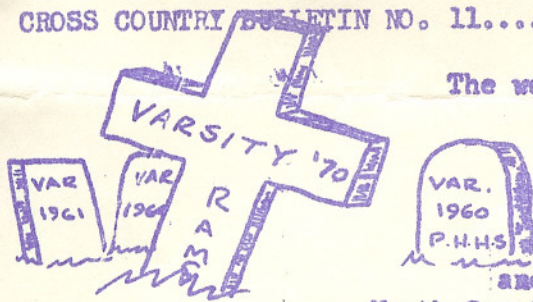 CROSS COUNTRY BULLETIN NO. 11....
The
VARSITY '70
RAMS
VAR
1961
VAR
VAR.
1960
P.H.H.S